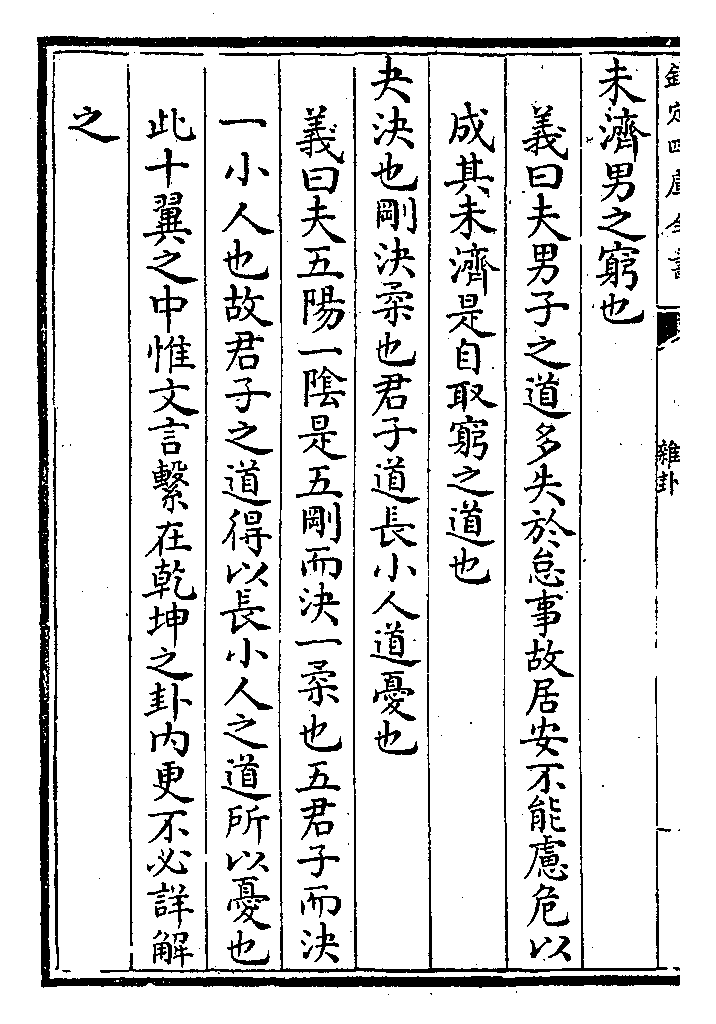 欽定四庫全書
雜卦
未濟男之窮也
義曰夫男子之道多失於怠事故居安不能慮危以
成其未濟是自取窮之道也
夬決也剛決柔也君子道長小人道憂也
義曰夫五陽一隂是五剛而決一柔也五君子而決
一小人也故君子之道得以長小人之道所以憂也
此十翼之中惟文言繫在乾坤之卦内更不必詳解
之